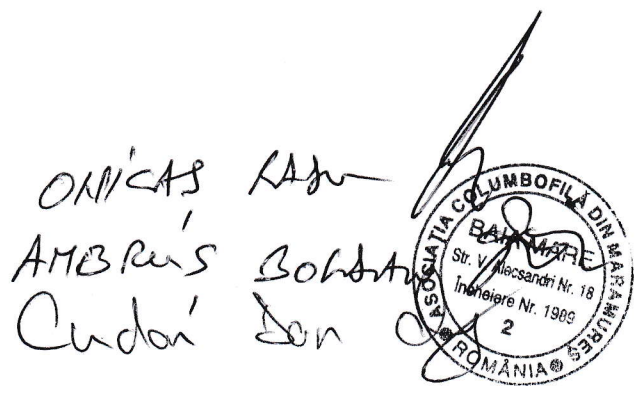 ONICAS RADU
AMBRUS BOGDAN
Dan
ASOCIAȚIA COLUMBOFILĂ DIN MARAMUREȘ
BAIA MARE
Str. V. Alecsandri Nr. 18
Încheiere Nr. 1989
2
ROMÂNIA